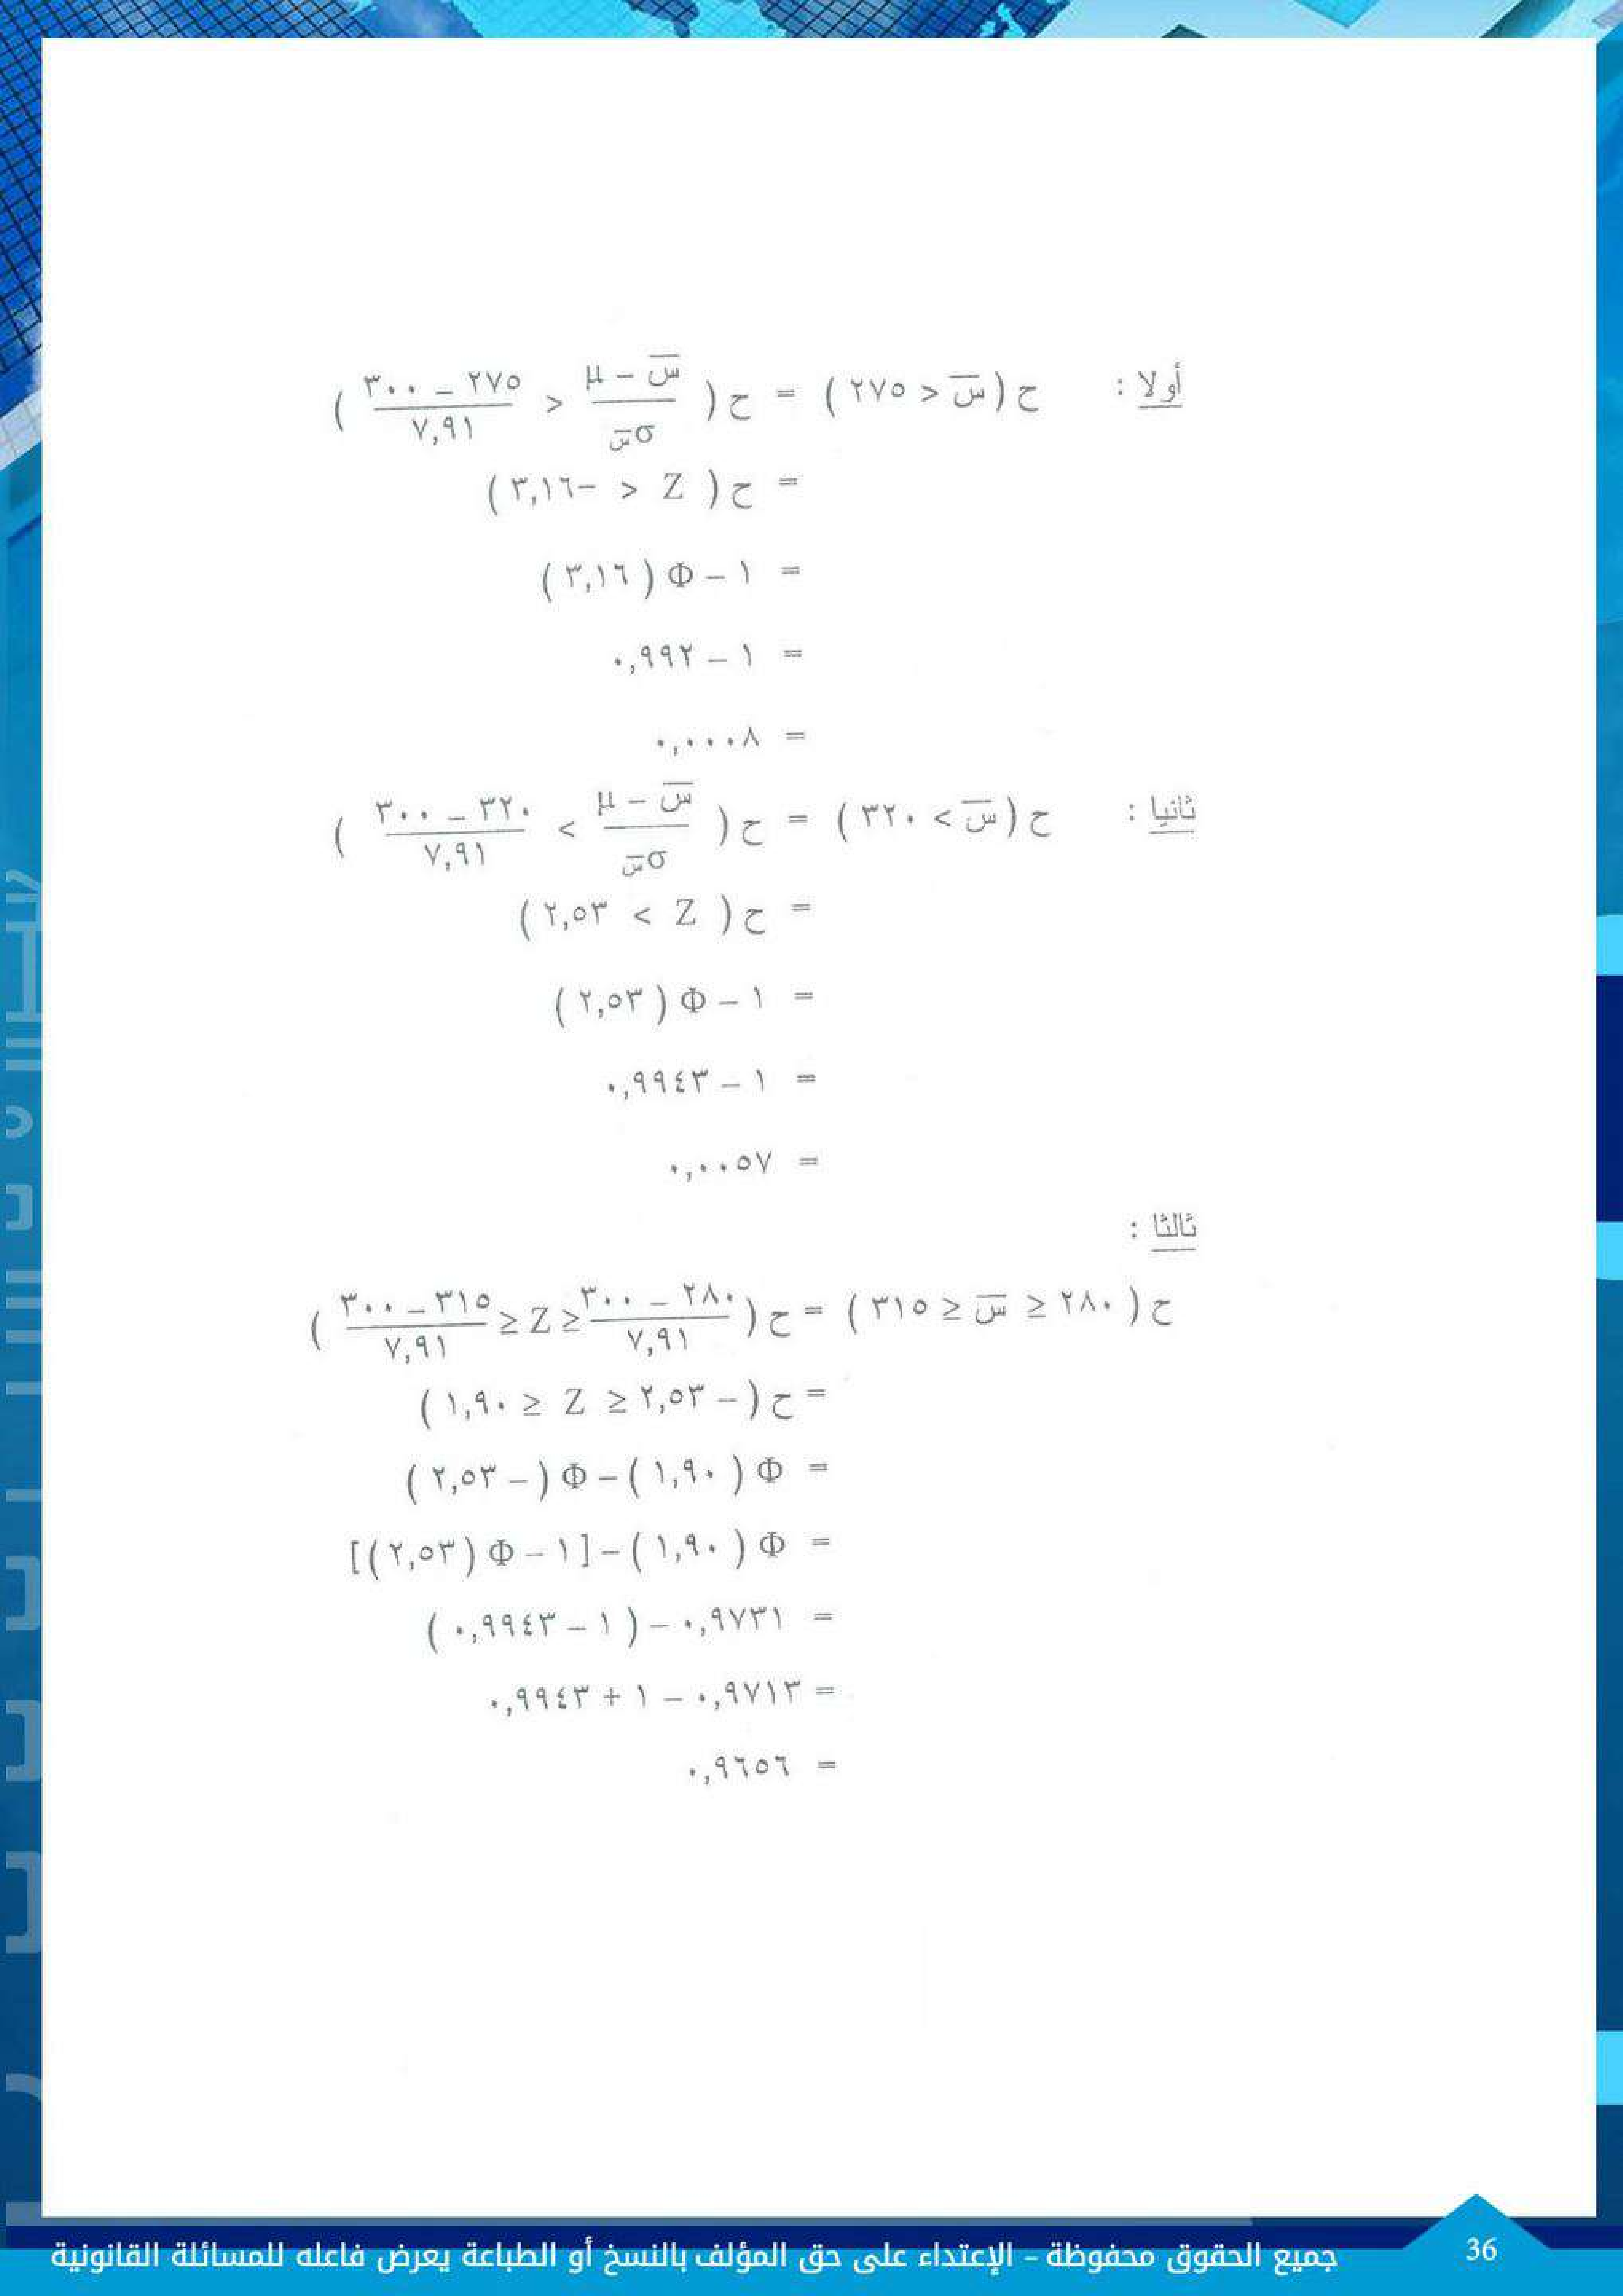 أولا : ح (س̅ < ٢٧٥ ) = ح ( (س̅ – μ)/(σس̅) < (٢٧٥ – ٣٠٠)/(٧,٩١) )
= ح ( Z < -٣,١٦ )
= ١ – Φ ( ٣,١٦ )
= ١ – ٠,٩٩٢
= ٠,٠٠٠٨
ثانيا : ح (س̅ > ٣٢٠ ) = ح ( (س̅ – μ)/(σس̅) > (٣٢٠ – ٣٠٠)/(٧,٩١) )
= ح ( Z > ٢,٥٣ )
= ١ – Φ ( ٢,٥٣ )
= ١ – ٠,٩٩٤٣
= ٠,٠٠٥٧
ثالثا :
ح ( ٢٨٠ ≤ س̅ ≤ ٣١٥ ) = ح ( (٢٨٠ – ٣٠٠)/(٧,٩١) ≤ Z ≤ (٣١٥ – ٣٠٠)/(٧,٩١) )
= ح (– ٢,٥٣ ≤ Z ≤ ١,٩٠ )
= Φ ( ١,٩٠ ) – Φ (– ٢,٥٣ )
= Φ ( ١,٩٠ ) – [١ – Φ (٢,٥٣)]
= ٠,٩٧٣١ – ( ١ – ٠,٩٩٤٣ )
= ٠,٩٧١٣ – ١ + ٠,٩٩٤٣
= ٠,٩٦٥٦
جميع الحقوق محفوظة - الإعتداء على حق المؤلف بالنسخ أو الطباعة يعرض فاعله للمسائلة القانونية
36